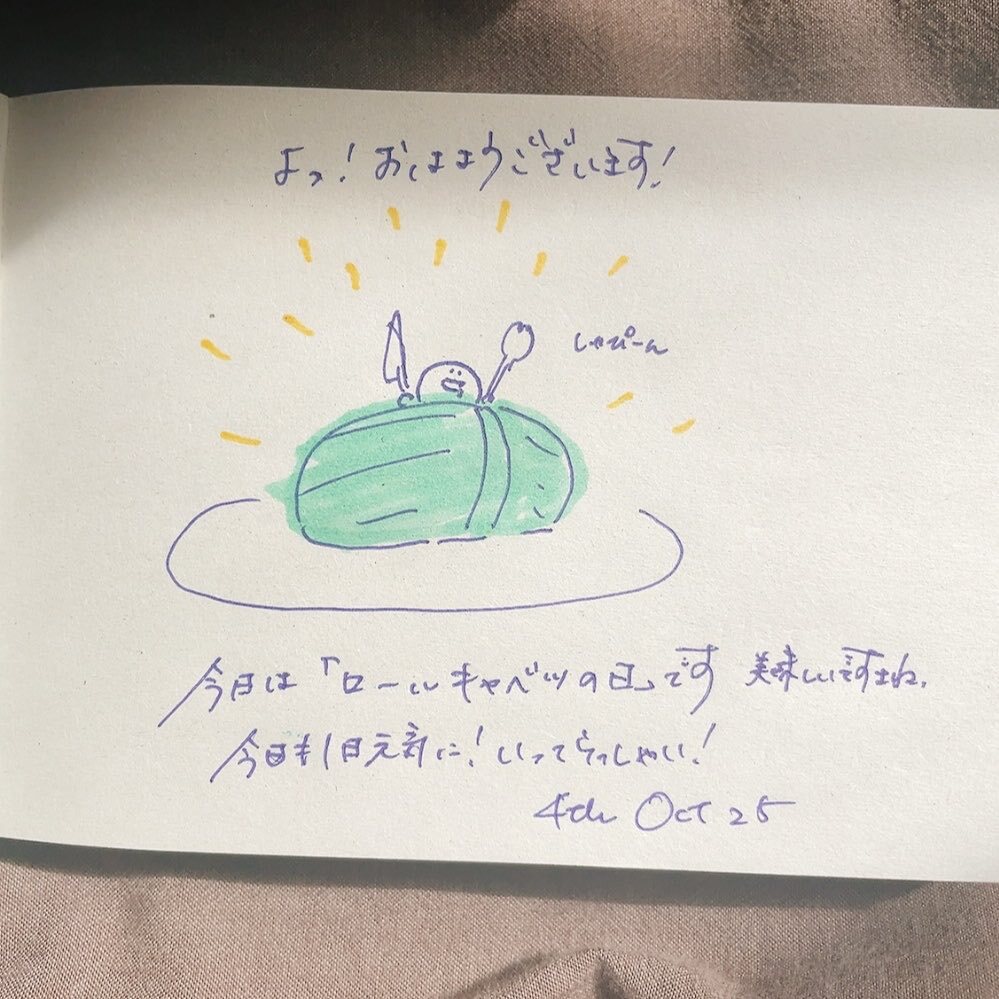 よっ!おはようございます!
しゃぴーん
今日は「ロールキャベツの日」です 美味しいですよね.
今日も1日元気に!いってらっしゃい!
4th Oct 25